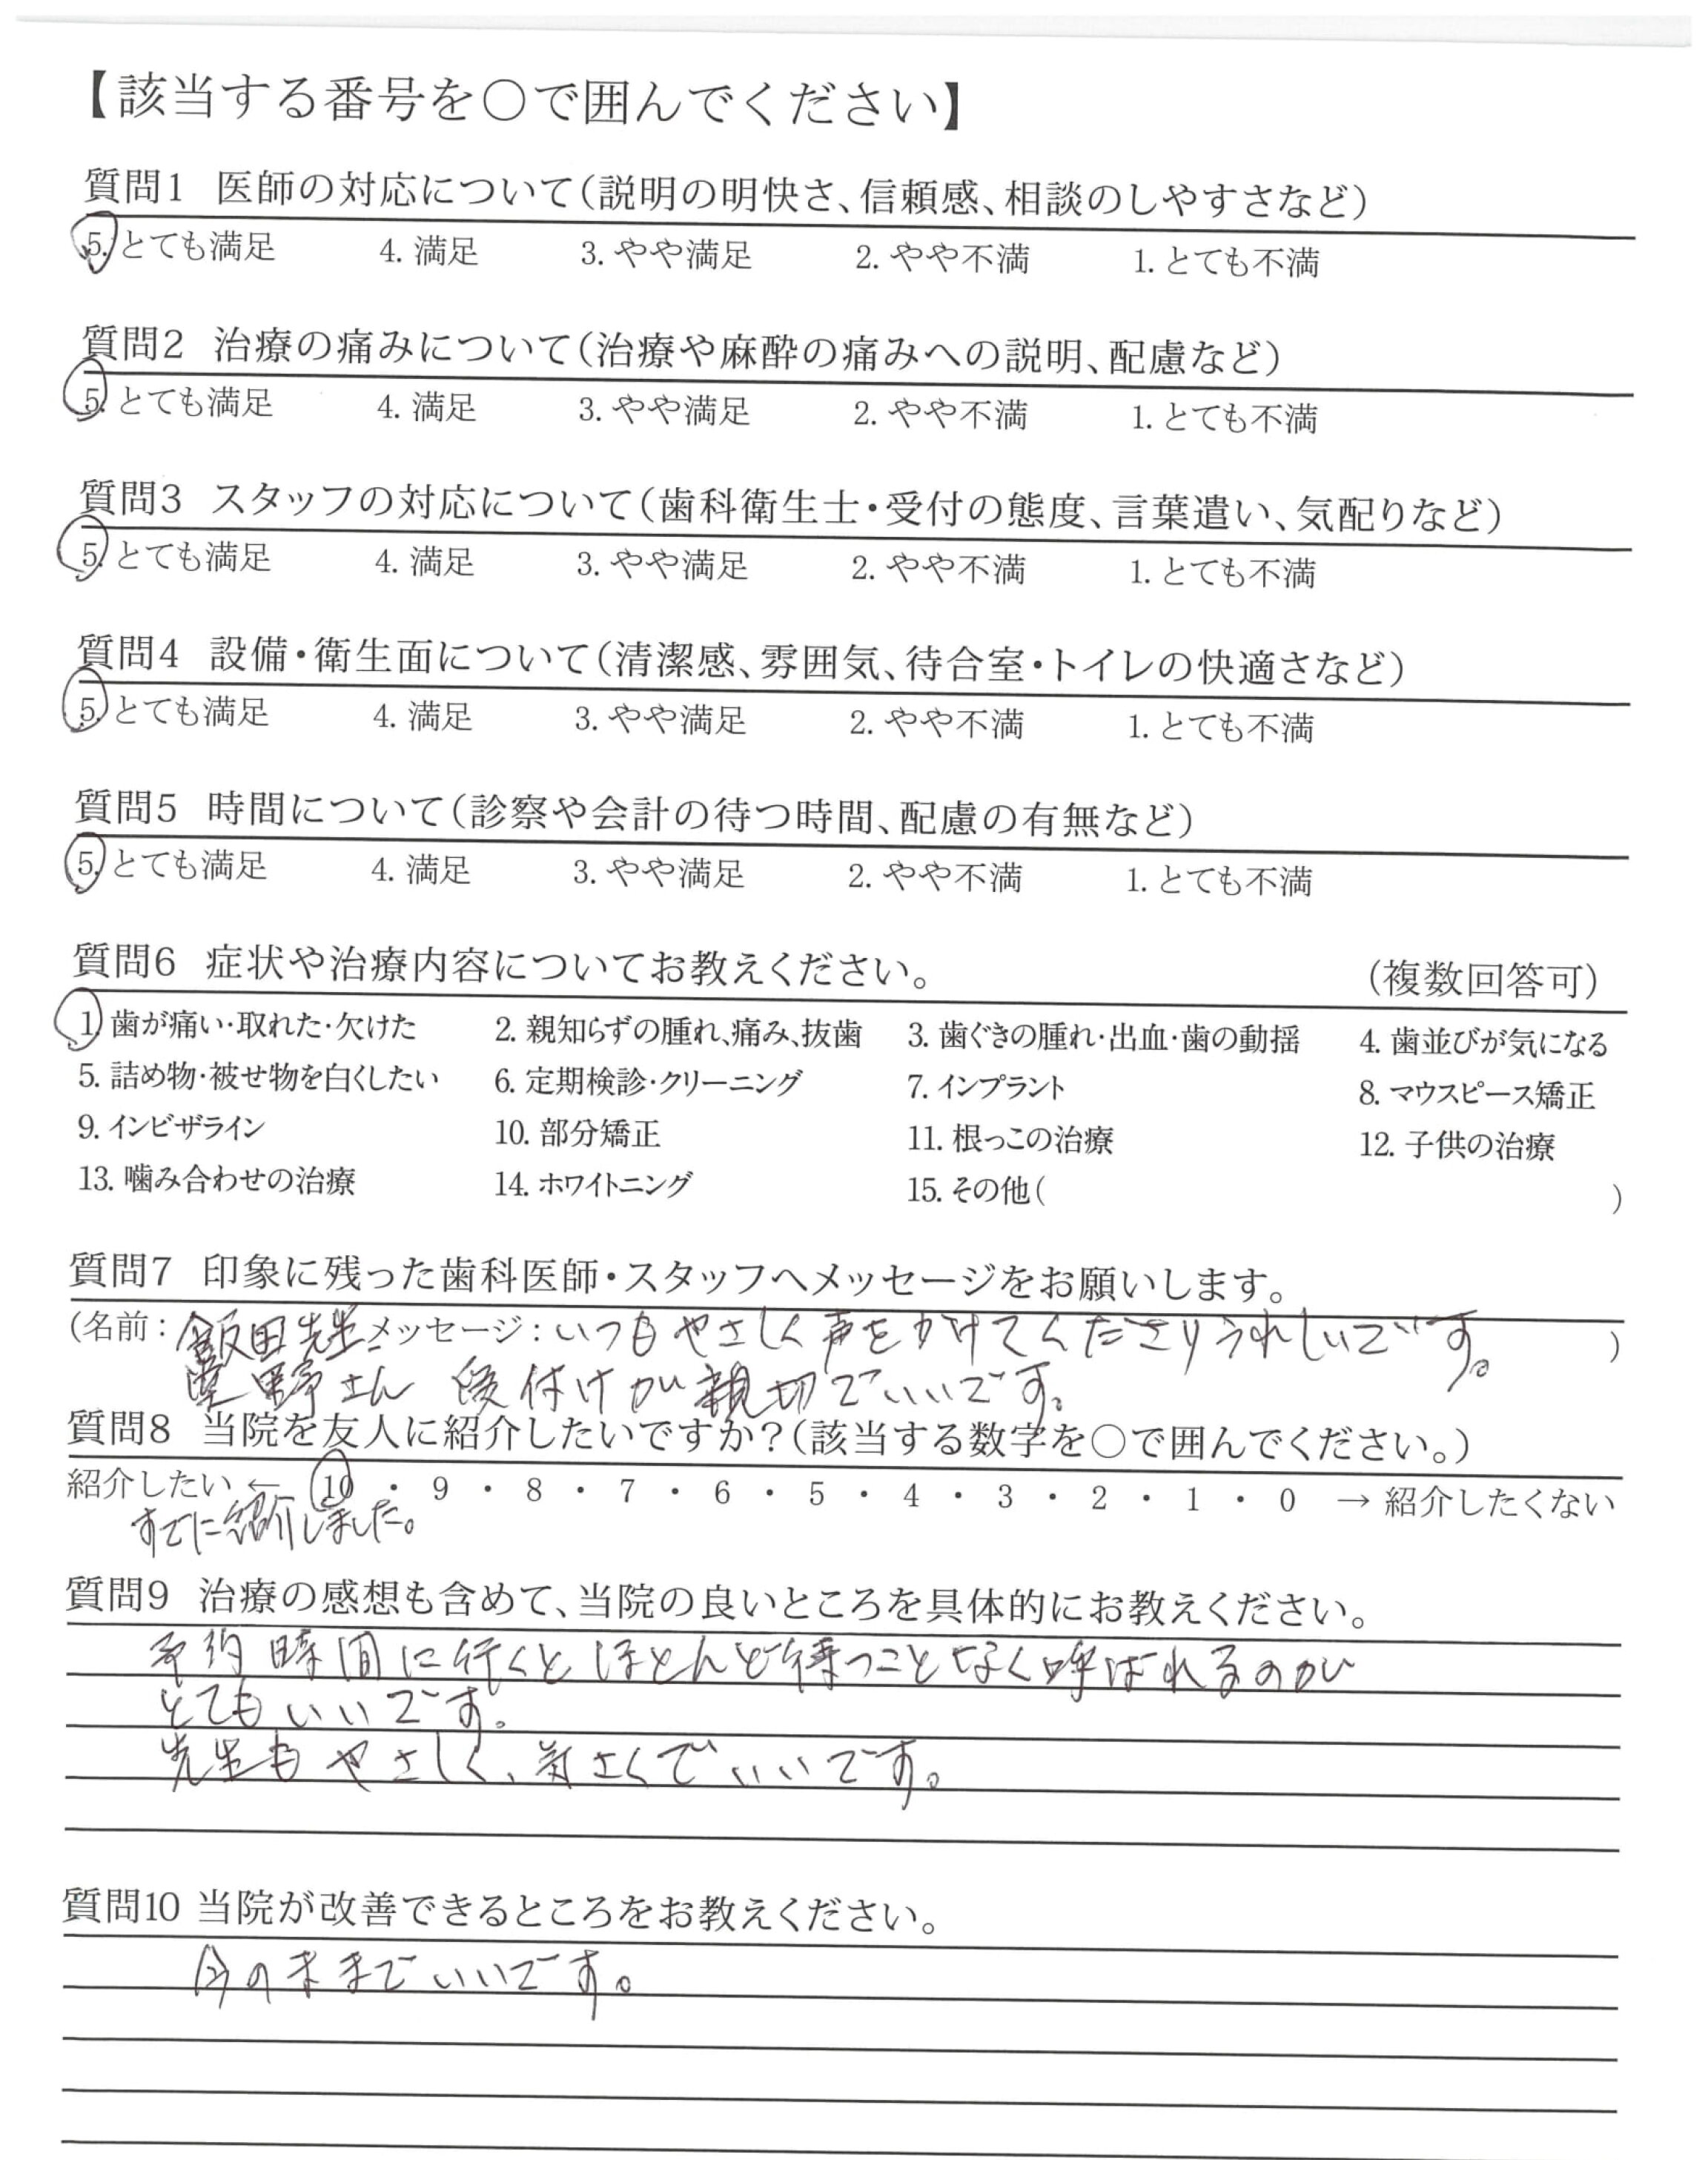 【該当する番号を○で囲んでください】
質問1 医師の対応について(説明の明快さ、信頼感、相談のしやすさなど)
5. とても満足 4. 満足 3. やや満足 2. やや不満 1. とても不満
質問2 治療の痛みについて(治療や麻酔の痛みへの説明、配慮など)
5. とても満足 4. 満足 3. やや満足 2. やや不満 1. とても不満
質問3 スタッフの対応について(歯科衛生士・受付の態度、言葉遣い、気配りなど)
5. とても満足 4. 満足 3. やや満足 2. やや不満 1. とても不満
質問4 設備・衛生面について(清潔感、雰囲気、待合室・トイレの快適さなど)
5. とても満足 4. 満足 3. やや満足 2. やや不満 1. とても不満
質問5 時間について(診察や会計の待つ時間、配慮の有無など)
5. とても満足 4. 満足 3. やや満足 2. やや不満 1. とても不満
質問6 症状や治療内容についてお教えください。 (複数回答可)
1. 歯が痛い・取れた・欠けた 2. 親知らずの腫れ、痛み、抜歯 3. 歯ぐきの腫れ・出血・歯の動揺 4. 歯並びが気になる
5. 詰め物・被せ物を白くしたい 6. 定期検診・クリーニング 7. インプラント 8. マウスピース矯正
9. インビザライン 10. 部分矯正 11. 根っこの治療 12. 子供の治療
13. 噛み合わせの治療 14. ホワイトニング 15. その他( )
質問7 印象に残った歯科医師・スタッフへメッセージをお願いします。
(名前: 飯田先生 メッセージ: いつもやさしく声をかけてくださりうれしいです。 )
野さん 受付けが親切でいいです。
質問8 当院を友人に紹介したいですか?(該当する数字を○で囲んでください。)
紹介したい ← 10 ・ 9 ・ 8 ・ 7 ・ 6 ・ 5 ・ 4 ・ 3 ・ 2 ・ 1 ・ 0 → 紹介したくない
すでに紹介しました。
質問9 治療の感想も含めて、当院の良いところを具体的にお教えください。
予約時間に行くとほとんど待つことなく呼ばれるのが
とてもいいです。
先生もやさしく、気さくでいいです。
質問10 当院が改善できるところをお教えください。
今のままでいいです。